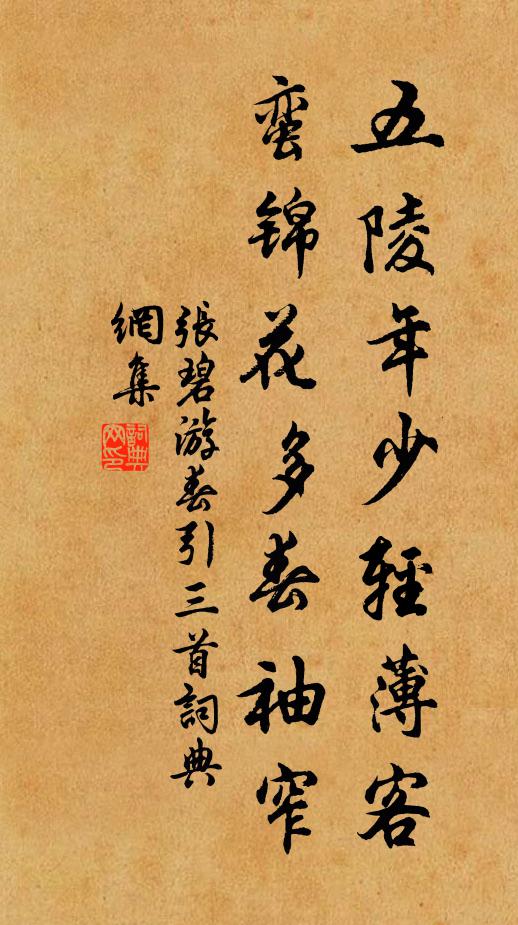 五陵年少輕薄客
蛮锦花多春袖窄
張碧游春引三首詞典
網集
詞典
网印